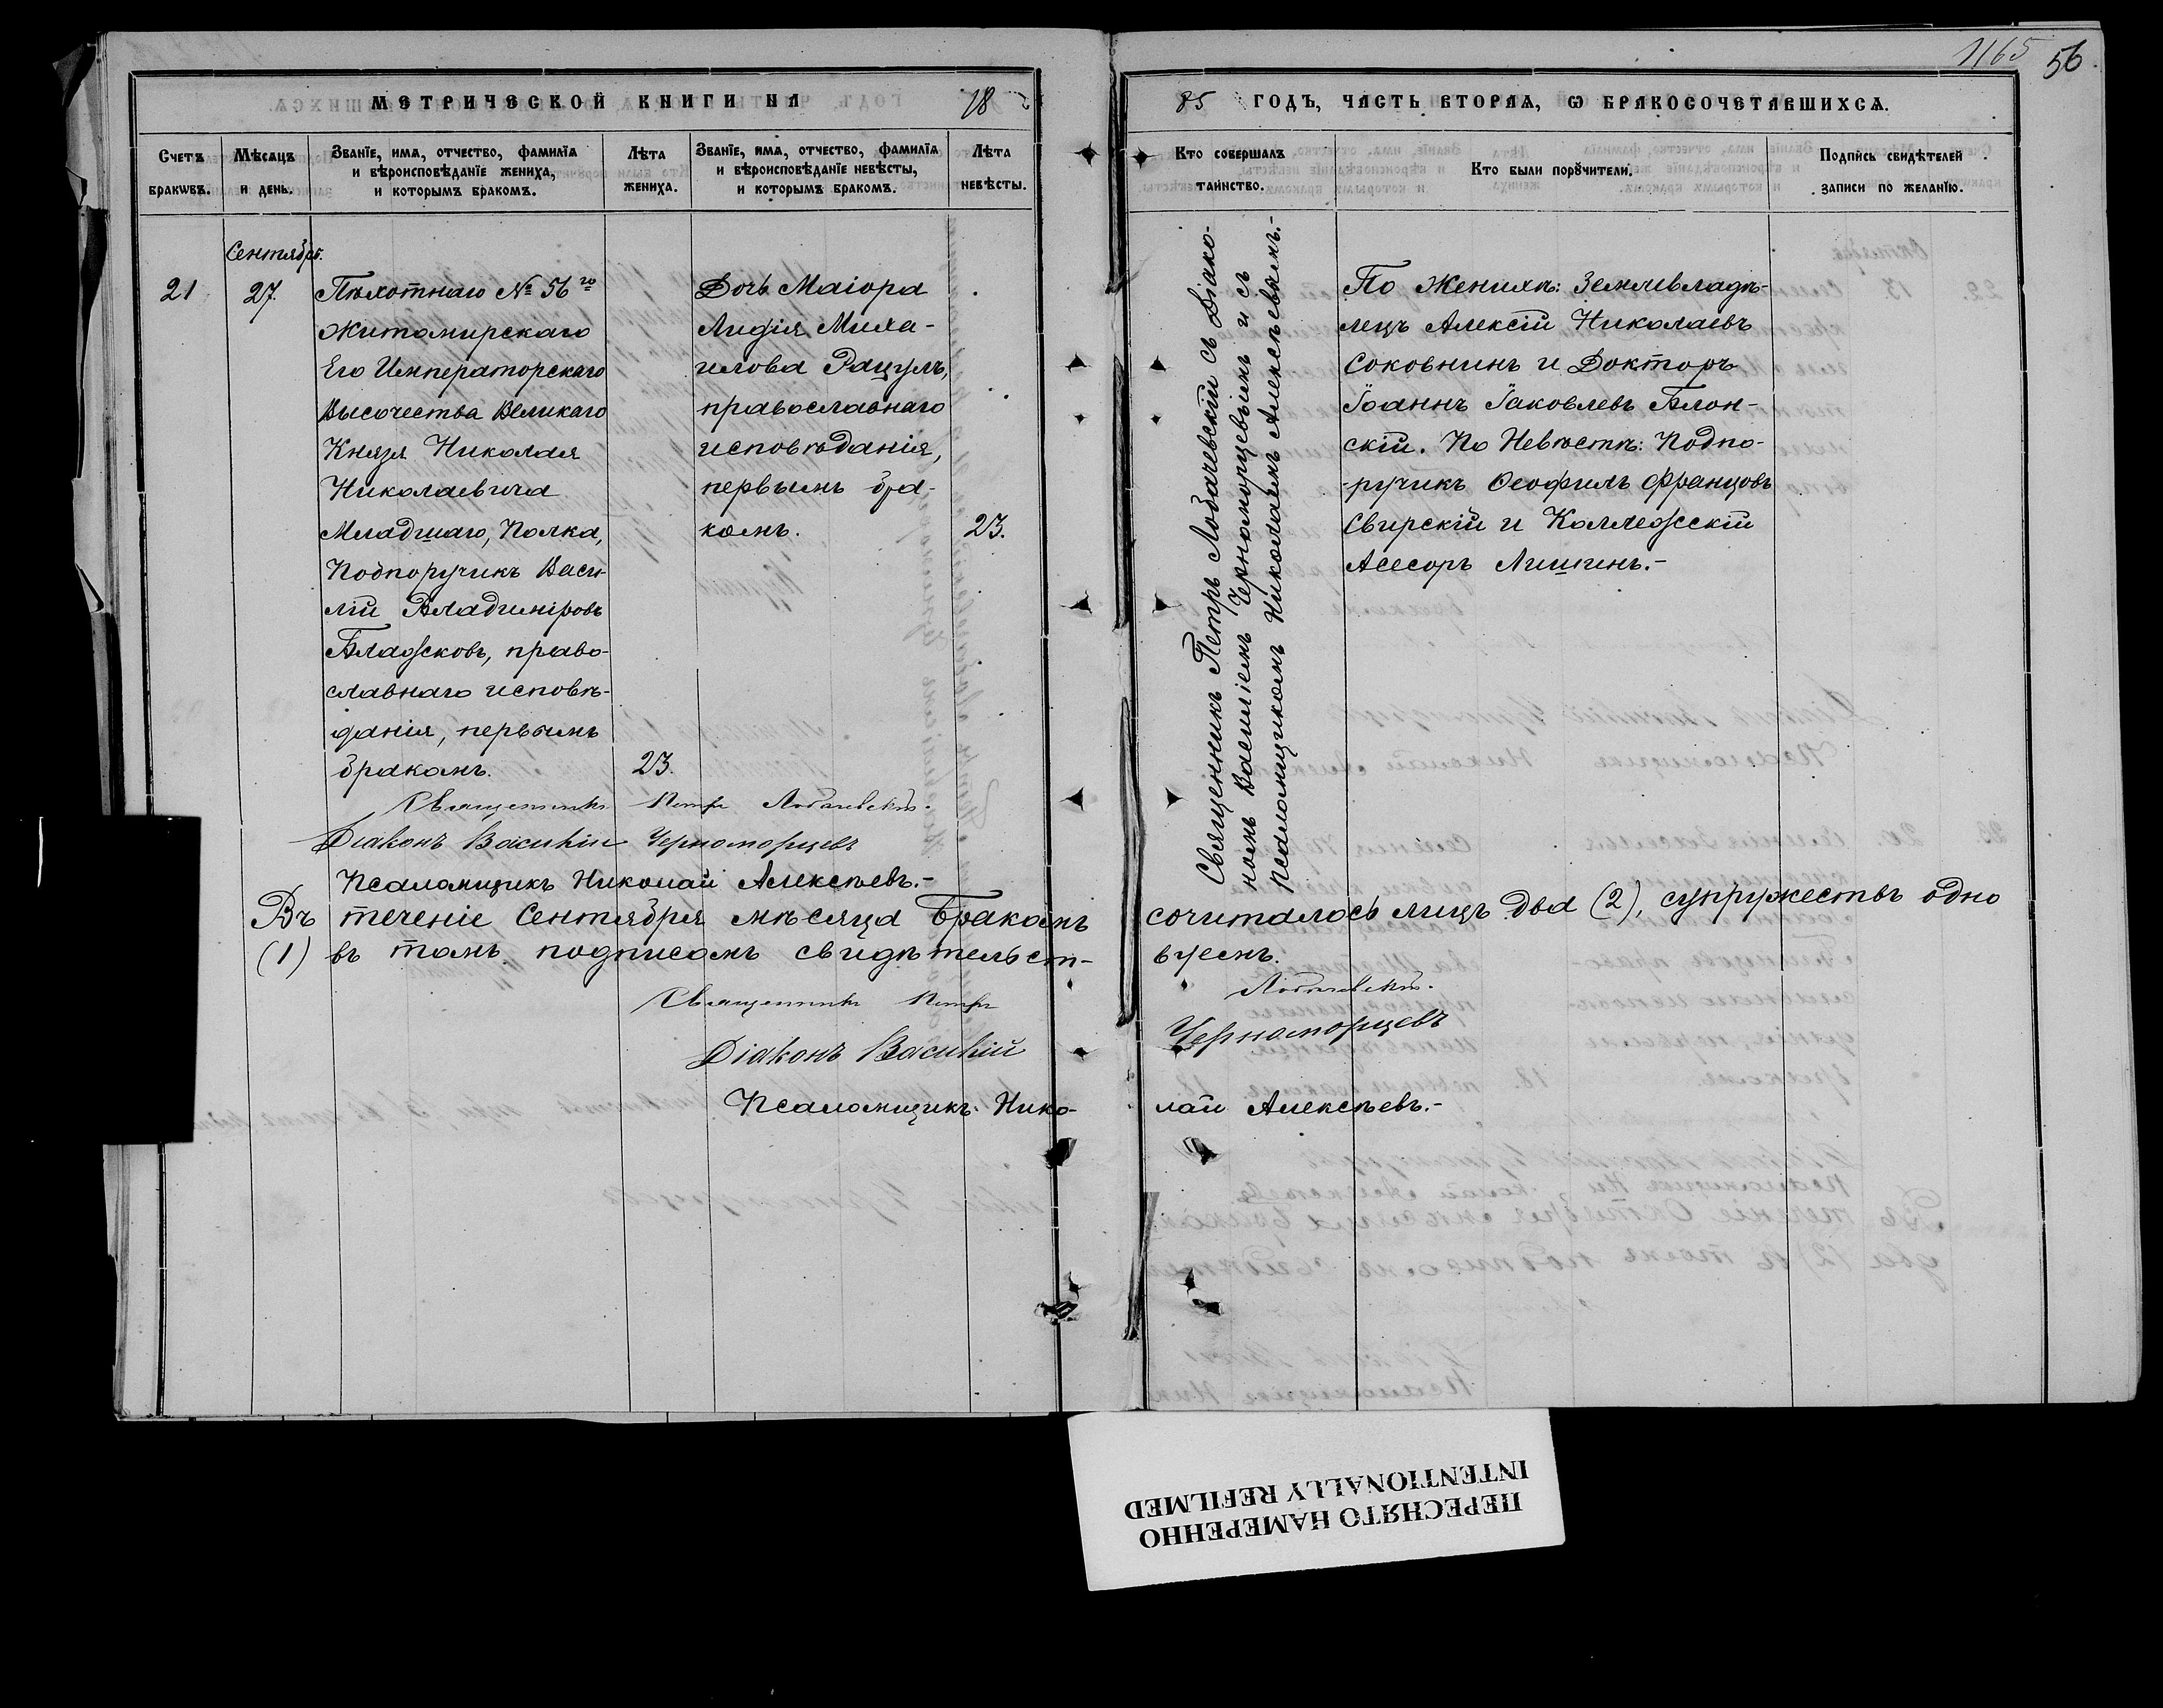 1165 56.
МЕТРИЧЕСКОЙ КНИГИ НА 18
85 ГОДЪ, ЧАСТЬ ВТОРАѦ, Ѡ БРАКОСОЧЕТАВШИХСѦ.
Счетъ браквъ.
Мѣсѧцъ и день.
Званїе, имѧ, отчество, фамилїѧ
и вѣроисповѣданїе жениха,
и которымъ бракомъ.
Лѣта
жениха.
Званїе, имѧ, отчество, фамилїѧ
и вѣроисповѣданїе невѣсты,
и которымъ бракомъ.
Лѣта
невѣсты.
Кто совершалъ
таинство.
Кто были порꙋчители.
Подпись свидѣтелей
записи по желанїю.
Сентябр.
21
27.
Пѣхотнаго № 56го
Житомирскаго
Его Императорскаго
Высочества Великаго
Князя Николая
Николаевича
Младшаго, Полка,
Подпоручикъ Васи-
лій Владиміровъ
Блажковъ, право-
славнаго исповѣ-
данія, первымъ
бракомъ.
23.
Дочь Маіора
Лидія Миха-
илова Рацулъ,
православнаго
исповѣданія,
первымъ бра-
комъ.
23.
Священникъ Петръ Лобачевскій съ Діако-
номъ Василіемъ Черноморцевымъ и съ
псаломщикомъ Николаемъ Алексѣевымъ.-
По Женихѣ: Землевладѣ-
лецъ Алексій Николаевъ
Соковнинъ и Докторъ
Іоаннъ Іаковлевъ Блон-
скій. По Невѣстѣ: Подпо-
-ручикъ Ѳеофилъ Францовъ
Свирскій и Коллежскій
Асесоръ Лишинъ.-
Священникъ Петръ Лобачевскій.
Діаконъ Василій Черноморцевъ
Псаломщикъ Николай Алексѣевъ.-
Въ теченіе Сентября мѣсяца Бракомъ сочиталось лицъ два (2), супружествъ одно
(1) въ томъ подписомъ свидѣтельст- вуемъ.
Священникъ Петръ Лобачевскій.
Діаконъ Василій Черноморцевъ
Псаломщикъ Нико- лай Алексѣевъ.-
ПЕРЕСНЯТО НАМЕРЕННО
INTENTIONALLY REFILMED